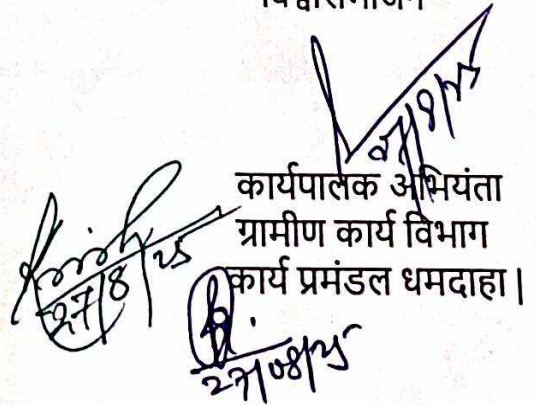 विश्वासभाजन
27/8/25
कार्यपालक अभियंता
ग्रामीण कार्य विभाग
कार्य प्रमंडल धमदाहा।
27/8/25
27/08/25